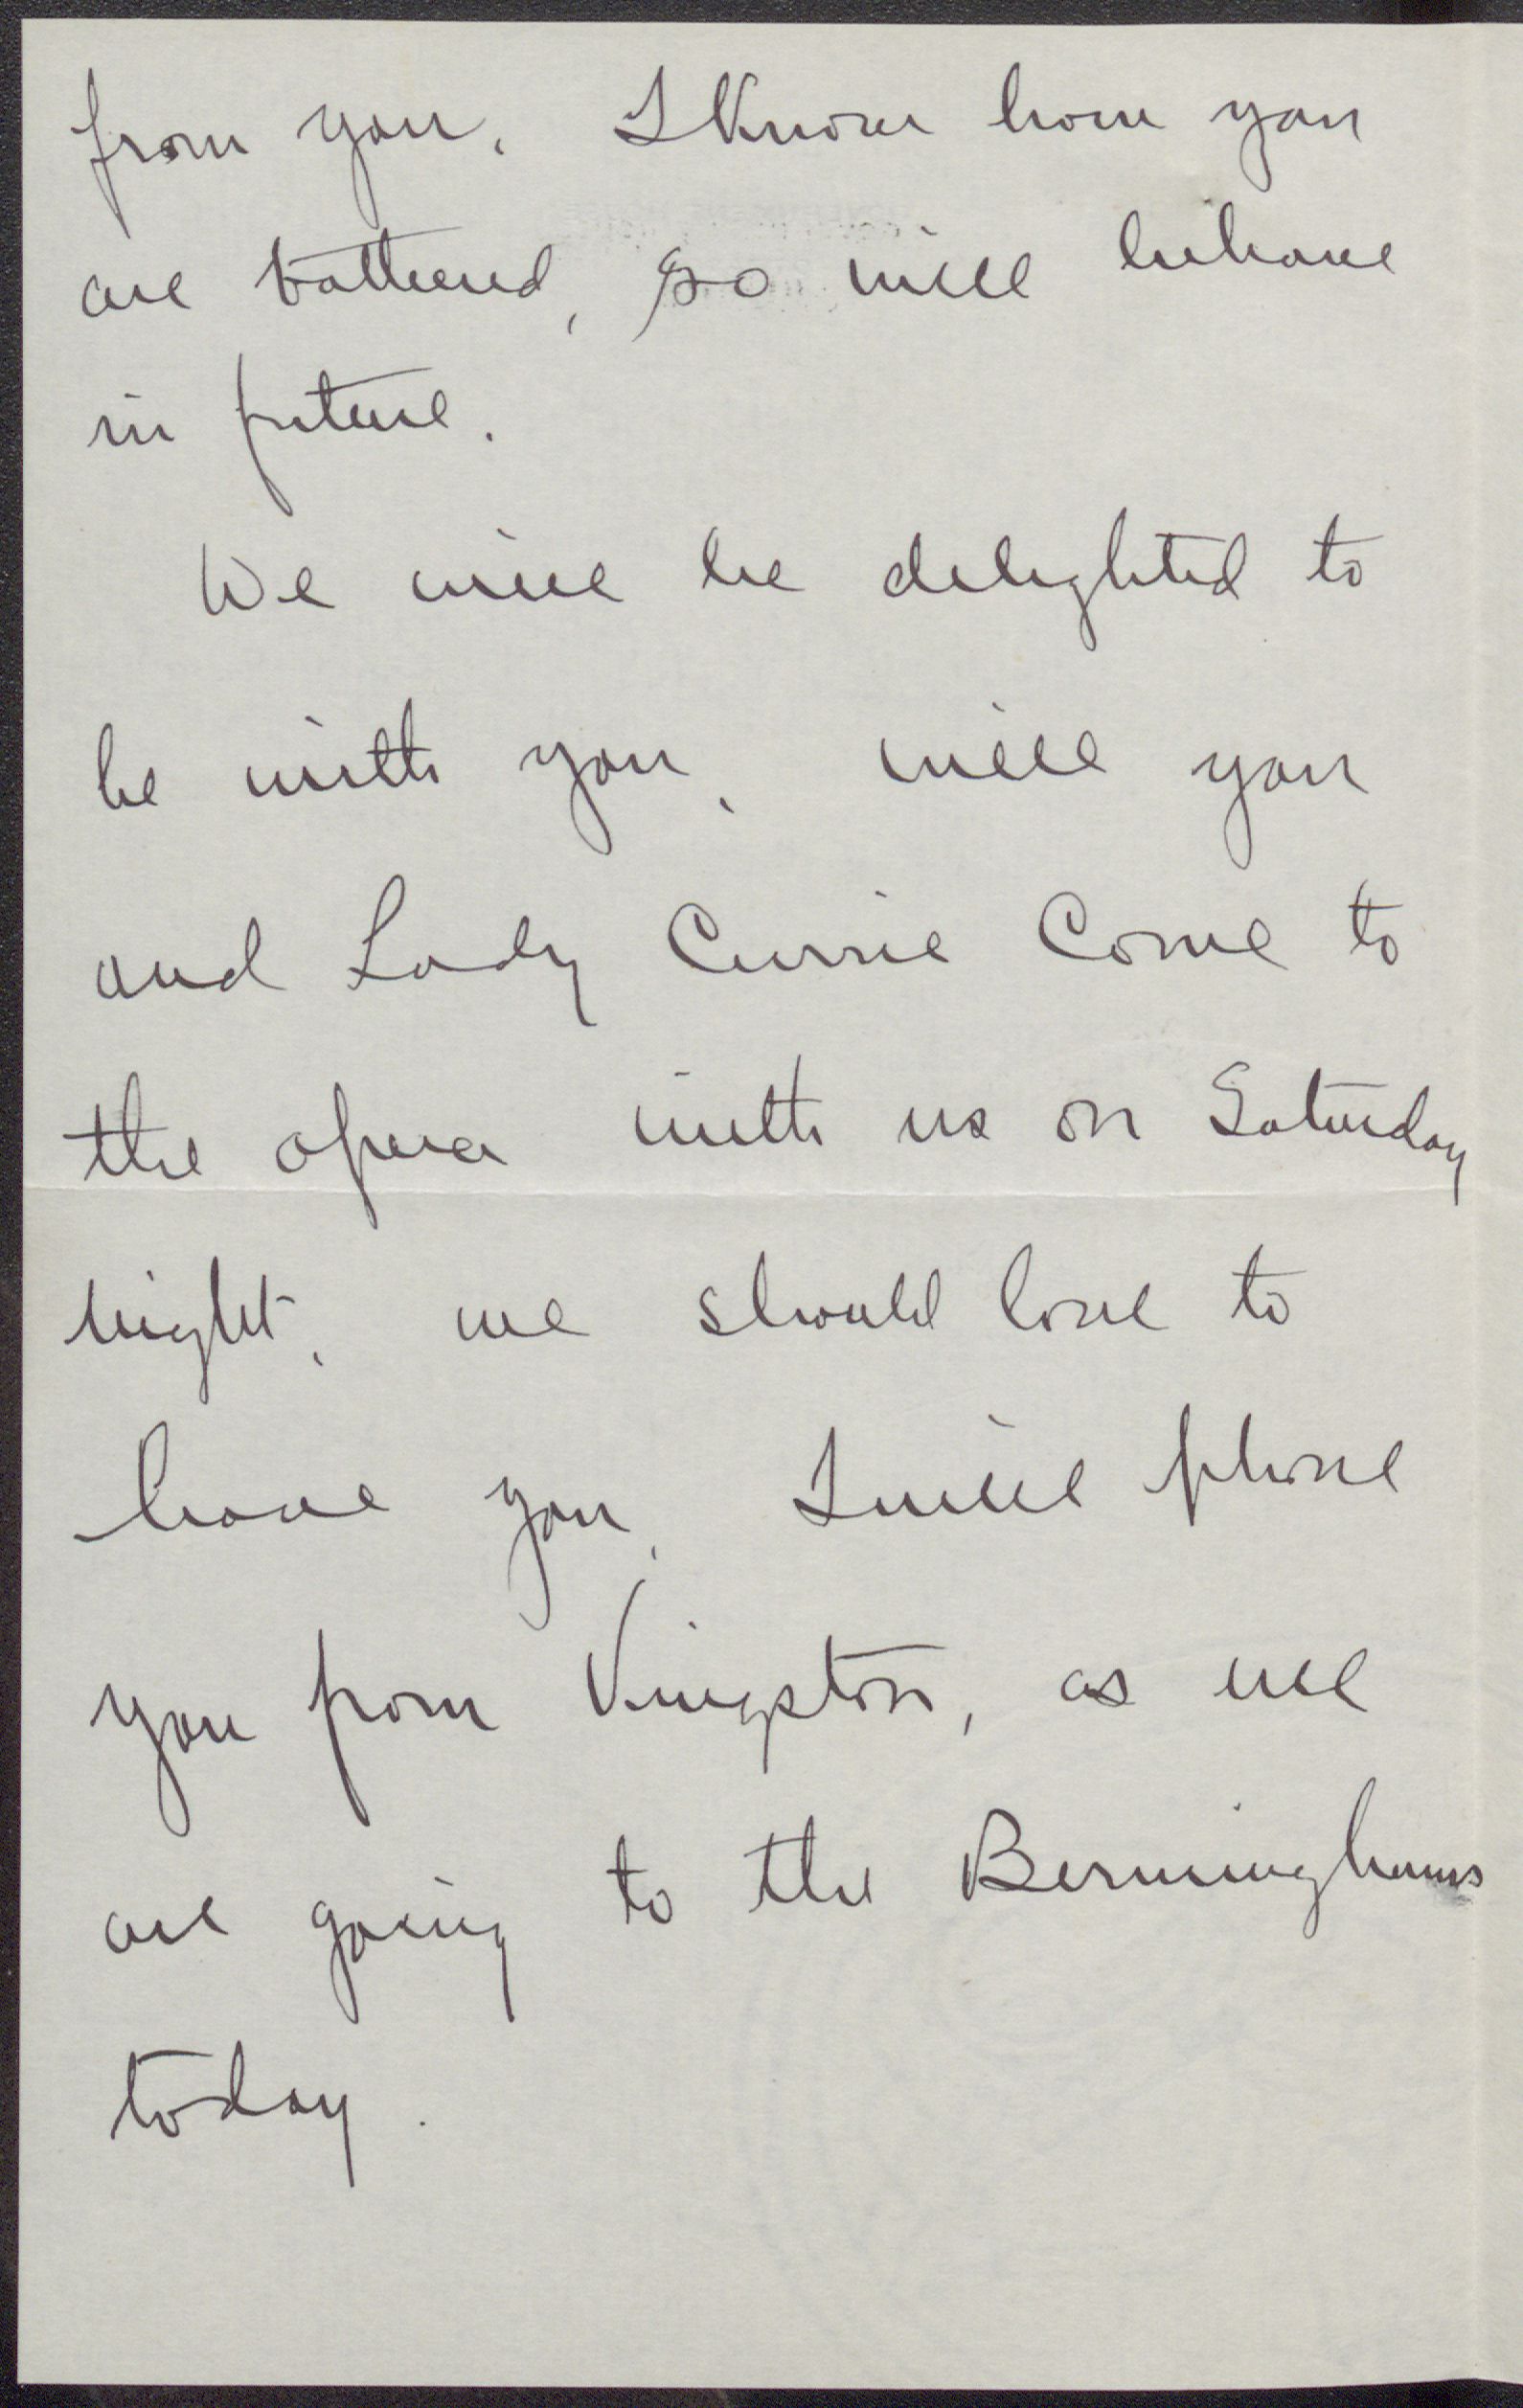 from you. I know how you
are bothered, so will behave
in future.
We will be delighted to
be with you, will you
and Lady Currie come to
the opera with us on Saturday
night, we should love to
have you, I will phone
you from Kingston, as we
are going to the Berminghams
today.